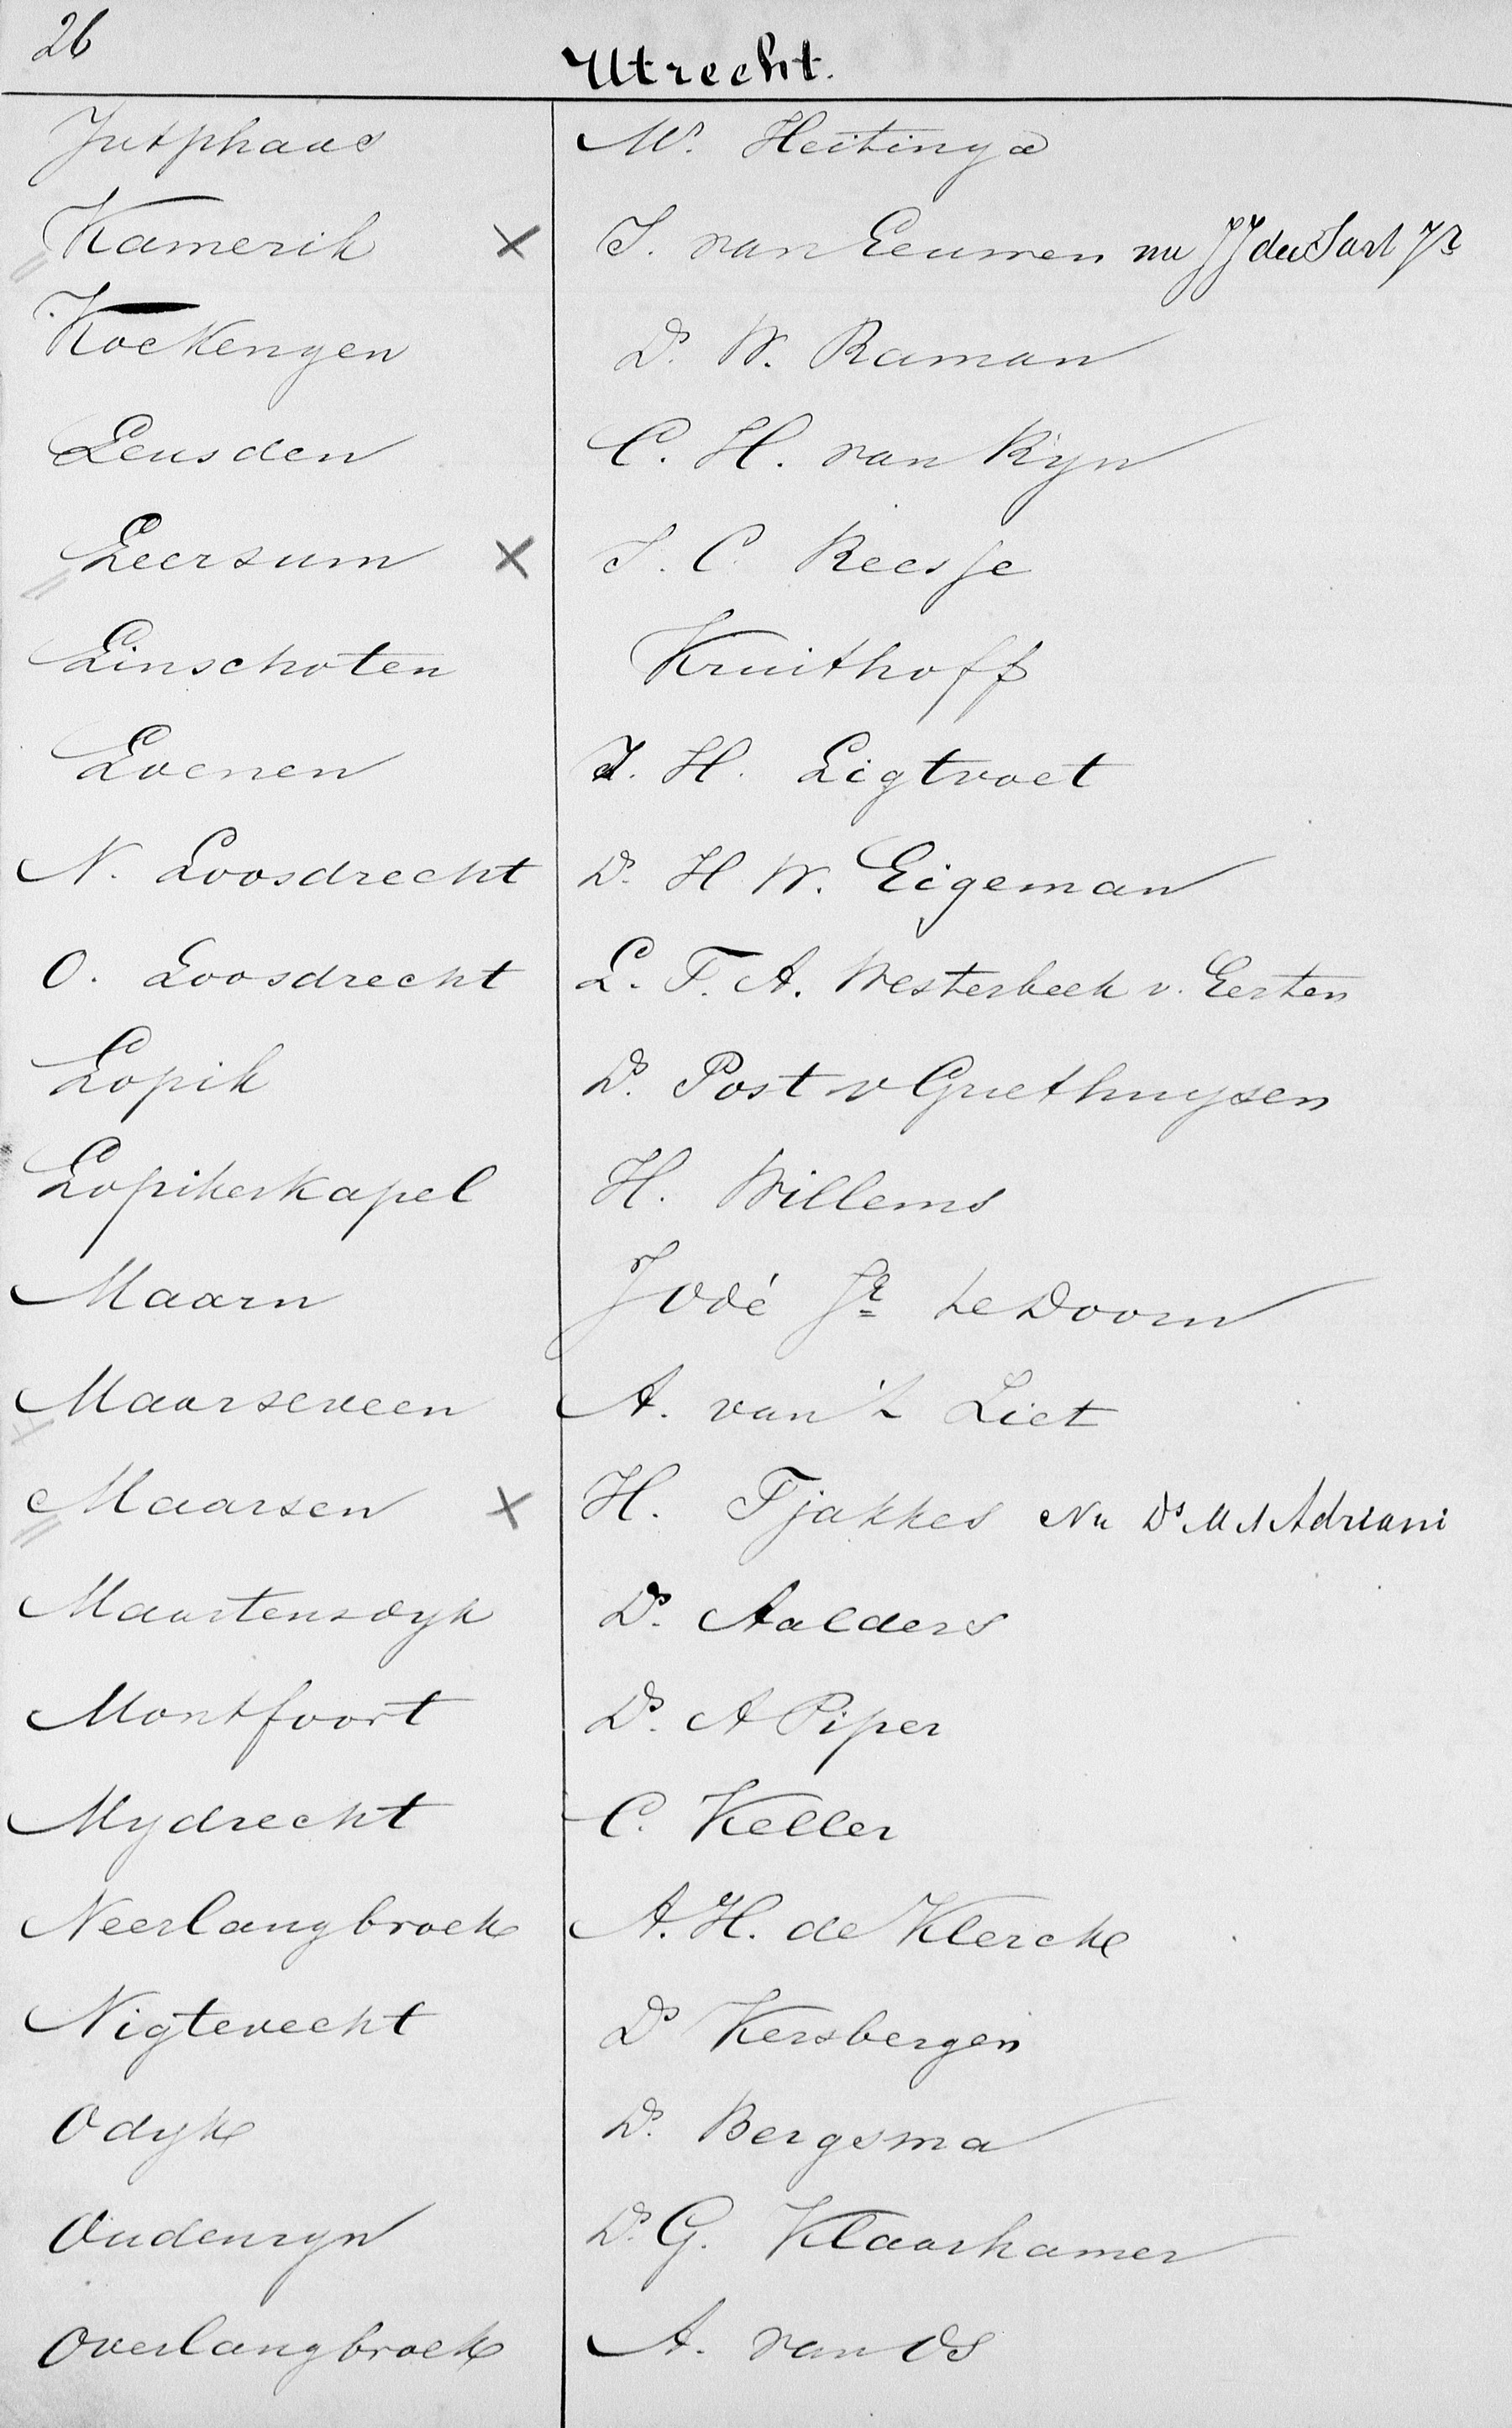 26
Utrecht.
Jutphaas Ms. Heitinga
Kamerik × J. van Eeuwen nu JJ du Sart Jr
Kockengen Ds. W. Raman
Leusden C. H. van Ryn
Leersum × J. C. Reesse
Linschoten Kruithoff
Loenen J. H. Ligtvoet
N. Loosdrecht Ds. H W. Eigeman
O. Loosdrecht L. F. A. Westerbeek v. Eerten
Lopik Ds. Post v Griethuysen
Lopikerkapel H. Willems
Maarn Jodé Jr te Doorn
Maarseveen A. van 't Liet
Maarsen × H. Tjakkes Nu Ds M A Adriani
Maartensdyk Ds. Aalders
Montfoort Ds. A Piper
Mydrecht C. Keller
Neerlangbroek A. H. de Klerck
Nigtevecht Ds Kersbergen
Odyk Ds. Bergsma
Oudenryn Ds. G. Klaarhamer
Overlangbroek A. van Os